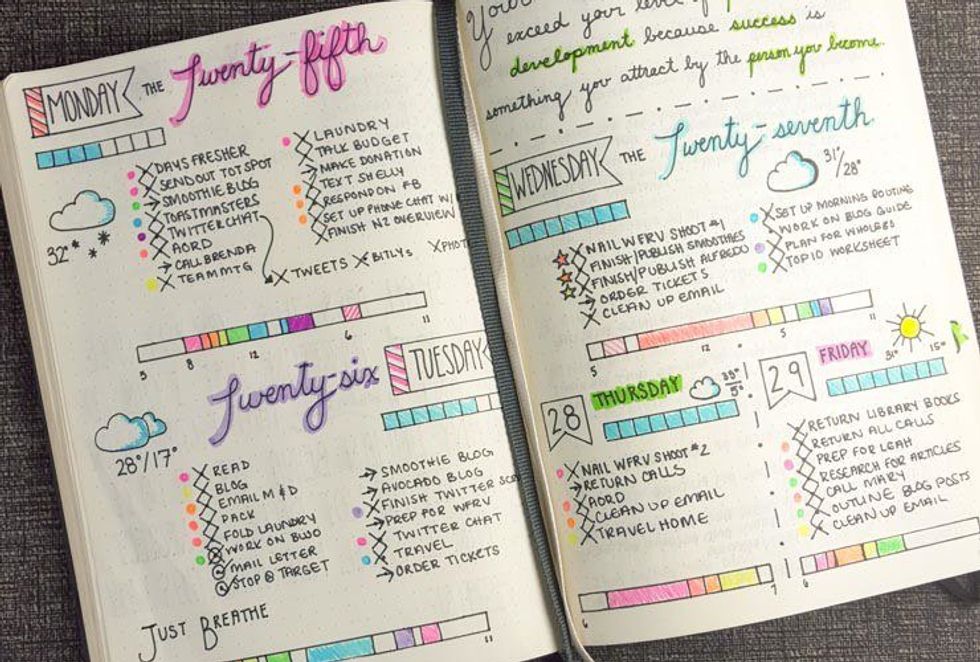 MONDAY THE Twenty-fifth
DAYS FRESHER
SEND OUT TOTSPOT
SMOOTHIE BLOG
TOASTMASTERS
TWITTER CHAT
AORD
→ CALL BRENDA
X TEAM MTG
LAUNDRY
TALK BUDGET
MAKE DONATION
TEXT SHELLY
RESPOND ON FB
SET UP PHONE CHAT W/
FINISH NZ OVERVIEW
32°
X TWEETS X BITLYS X PHOT
5 8 12 6 11
Twenty-six TUESDAY
28°/17°
READ
BLOG
EMAIL M & D
PACK
FOLD LAUNDRY
WORK ON BWO
MAIL LETTER
STOP @ TARGET
→ SMOOTHIE BLOG
→ AVOCADO BLOG
FINISH TWITTER
→ PREP FOR WFRV
TWITTER CHAT
TRAVEL
→ ORDER TICKETS
JUST BREATHE
11
exceed your level of
development because success is
something you attract by the person you become.
WEDNESDAY THE Twenty-seventh
31°/28°
NAIL WFRV SHOOT #1
FINISH/PUBLISH SMOOTHIES
FINISH/PUBLISH ALFREDO
→ ORDER TICKETS
X CLEAN UP EMAIL
SET UP MORNING ROUTINE
WORK ON BLOG GUIDE
PLAN FOR WHOLE30
TOP 10 WORKSHEET
5 12 5 11
28 THURSDAY
X NAIL WFRV SHOOT #2
→ RETURN CALLS
AORD
CLEAN UP EMAIL
TRAVEL HOME
6 7
29 FRIDAY
31° 15°
RETURN LIBRARY BOOKS
RETURN ALL CALLS
PREP FOR LEAH
RESEARCH FOR ARTICLES
CALL MARY
OUTLINE BLOG POSTS
CLEAN UP EMAIL
6